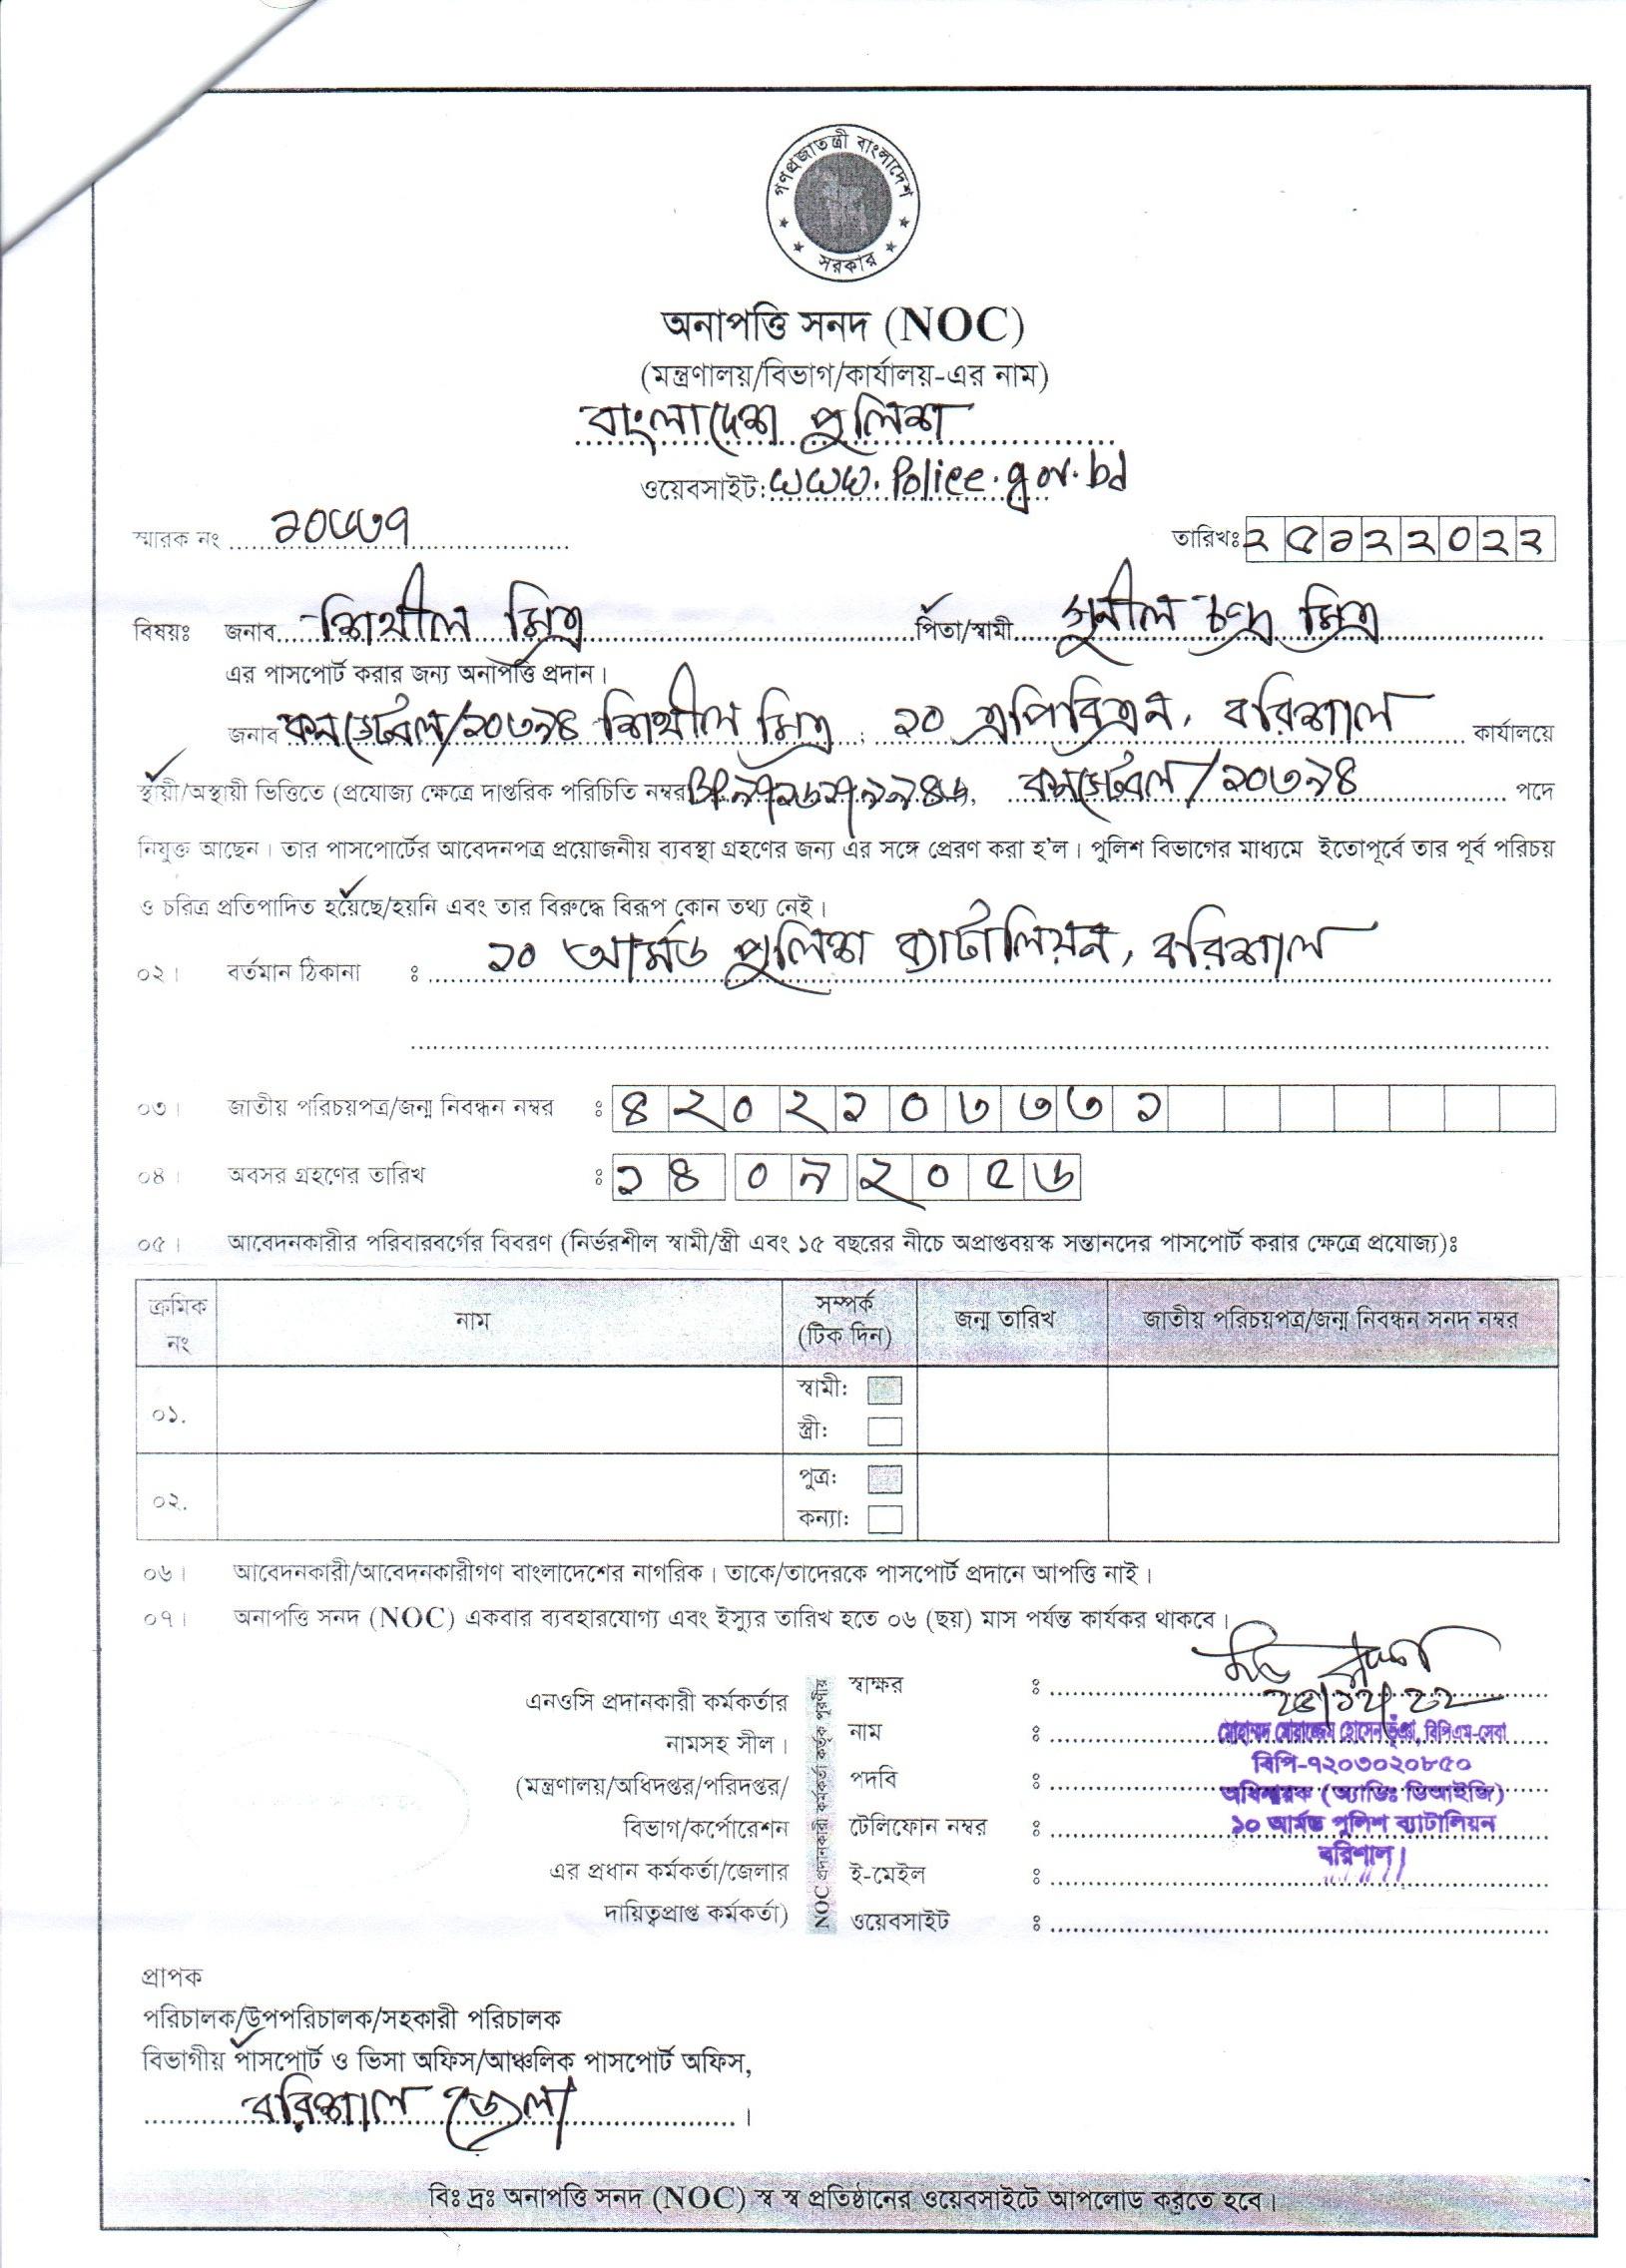 গণপ্রজাতন্ত্রী বাংলাদেশ
সরকার
অনাপত্তি সনদ (NOC)
(মন্ত্রণালয়/বিভাগ/কার্যালয়-এর নাম)
বাংলাদেশ পুলিশ
ওয়েবসাইট: www.Police.gov.bd
স্মারক নং তারিখঃ ২৫১২২০২২
বিষয়ঃ জনাব শিখীল মিত্র পিতা/স্বামী সুনীল চন্দ্র মিত্র
এর পাসপোর্ট করার জন্য অনাপত্তি প্রদান।
জনাব কনস্টেবল/২০৩৯৪ শিখীল মিত্র, ১০ এপিবিএন, বরিশাল কার্যালয়ে
স্থায়ী/অস্থায়ী ভিত্তিতে (প্রযোজ্য ক্ষেত্রে দাপ্তরিক পরিচিতি নম্বর কনস্টেবল/২০৩৯৪ পদে
নিযুক্ত আছেন। তার পাসপোর্টের আবেদনপত্র প্রয়োজনীয় ব্যবস্থা গ্রহণের জন্য এর সঙ্গে প্রেরণ করা হ'ল। পুলিশ বিভাগের মাধ্যমে ইতোপূর্বে তার পূর্ব পরিচয়
ও চরিত্র প্রতিপাদিত হয়েছে/হয়নি এবং তার বিরুদ্ধে বিরূপ কোন তথ্য নেই।
০২। বর্তমান ঠিকানা ঃ ১০ আর্মড পুলিশ ব্যাটালিয়ন, বরিশাল
০৩। জাতীয় পরিচয়পত্র/জন্ম নিবন্ধন নম্বর ঃ ৪২০২১০৩৩৩১
০৪। অবসর গ্রহণের তারিখ ঃ ১৪০৯২০৫৬
০৫। আবেদনকারীর পরিবারবর্গের বিবরণ (নির্ভরশীল স্বামী/স্ত্রী এবং ১৫ বছরের নীচে অপ্রাপ্তবয়স্ক সন্তানদের পাসপোর্ট করার ক্ষেত্রে প্রযোজ্য)ঃ
ক্রমিক নং নাম সম্পর্ক (টিক দিন) জন্ম তারিখ জাতীয় পরিচয়পত্র/জন্ম নিবন্ধন সনদ নম্বর
০১. স্বামী:
স্ত্রী:
০২. পুত্র:
কন্যা:
০৬। আবেদনকারী/আবেদনকারীগণ বাংলাদেশের নাগরিক। তাকে/তাদেরকে পাসপোর্ট প্রদানে আপত্তি নাই।
০৭। অনাপত্তি সনদ (NOC) একবার ব্যবহারযোগ্য এবং ইস্যুর তারিখ হতে ০৬ (ছয়) মাস পর্যন্ত কার্যকর থাকবে।
এনওসি প্রদানকারী কর্মকর্তার
নামসহ সীল।
(মন্ত্রণালয়/অধিদপ্তর/পরিদপ্তর/
বিভাগ/কর্পোরেশন
এর প্রধান কর্মকর্তা/জেলার
দায়িত্বপ্রাপ্ত কর্মকর্তা)
NOC প্রদানকারী কর্মকর্তা কর্তৃক পূরণীয়
স্বাক্ষর ঃ ২৫/১২/২২
নাম ঃ মোহাম্মদ মোয়াজ্জেম হোসেন ভূঁঞা, বিপিএম-সেবা
বিপি-৭২০৩০২০৮৫০
পদবি ঃ অধিনায়ক (অ্যাডিঃ ডিআইজি)
টেলিফোন নম্বর ঃ ১০ আর্মড পুলিশ ব্যাটালিয়ন
বরিশাল।
ই-মেইল ঃ
ওয়েবসাইট ঃ
প্রাপক
পরিচালক/উপপরিচালক/সহকারী পরিচালক
বিভাগীয় পাসপোর্ট ও ভিসা অফিস/আঞ্চলিক পাসপোর্ট অফিস,
বরিশাল জেলা।
বিঃ দ্রঃ অনাপত্তি সনদ (NOC) স্ব স্ব প্রতিষ্ঠানের ওয়েবসাইটে আপলোড করতে হবে।